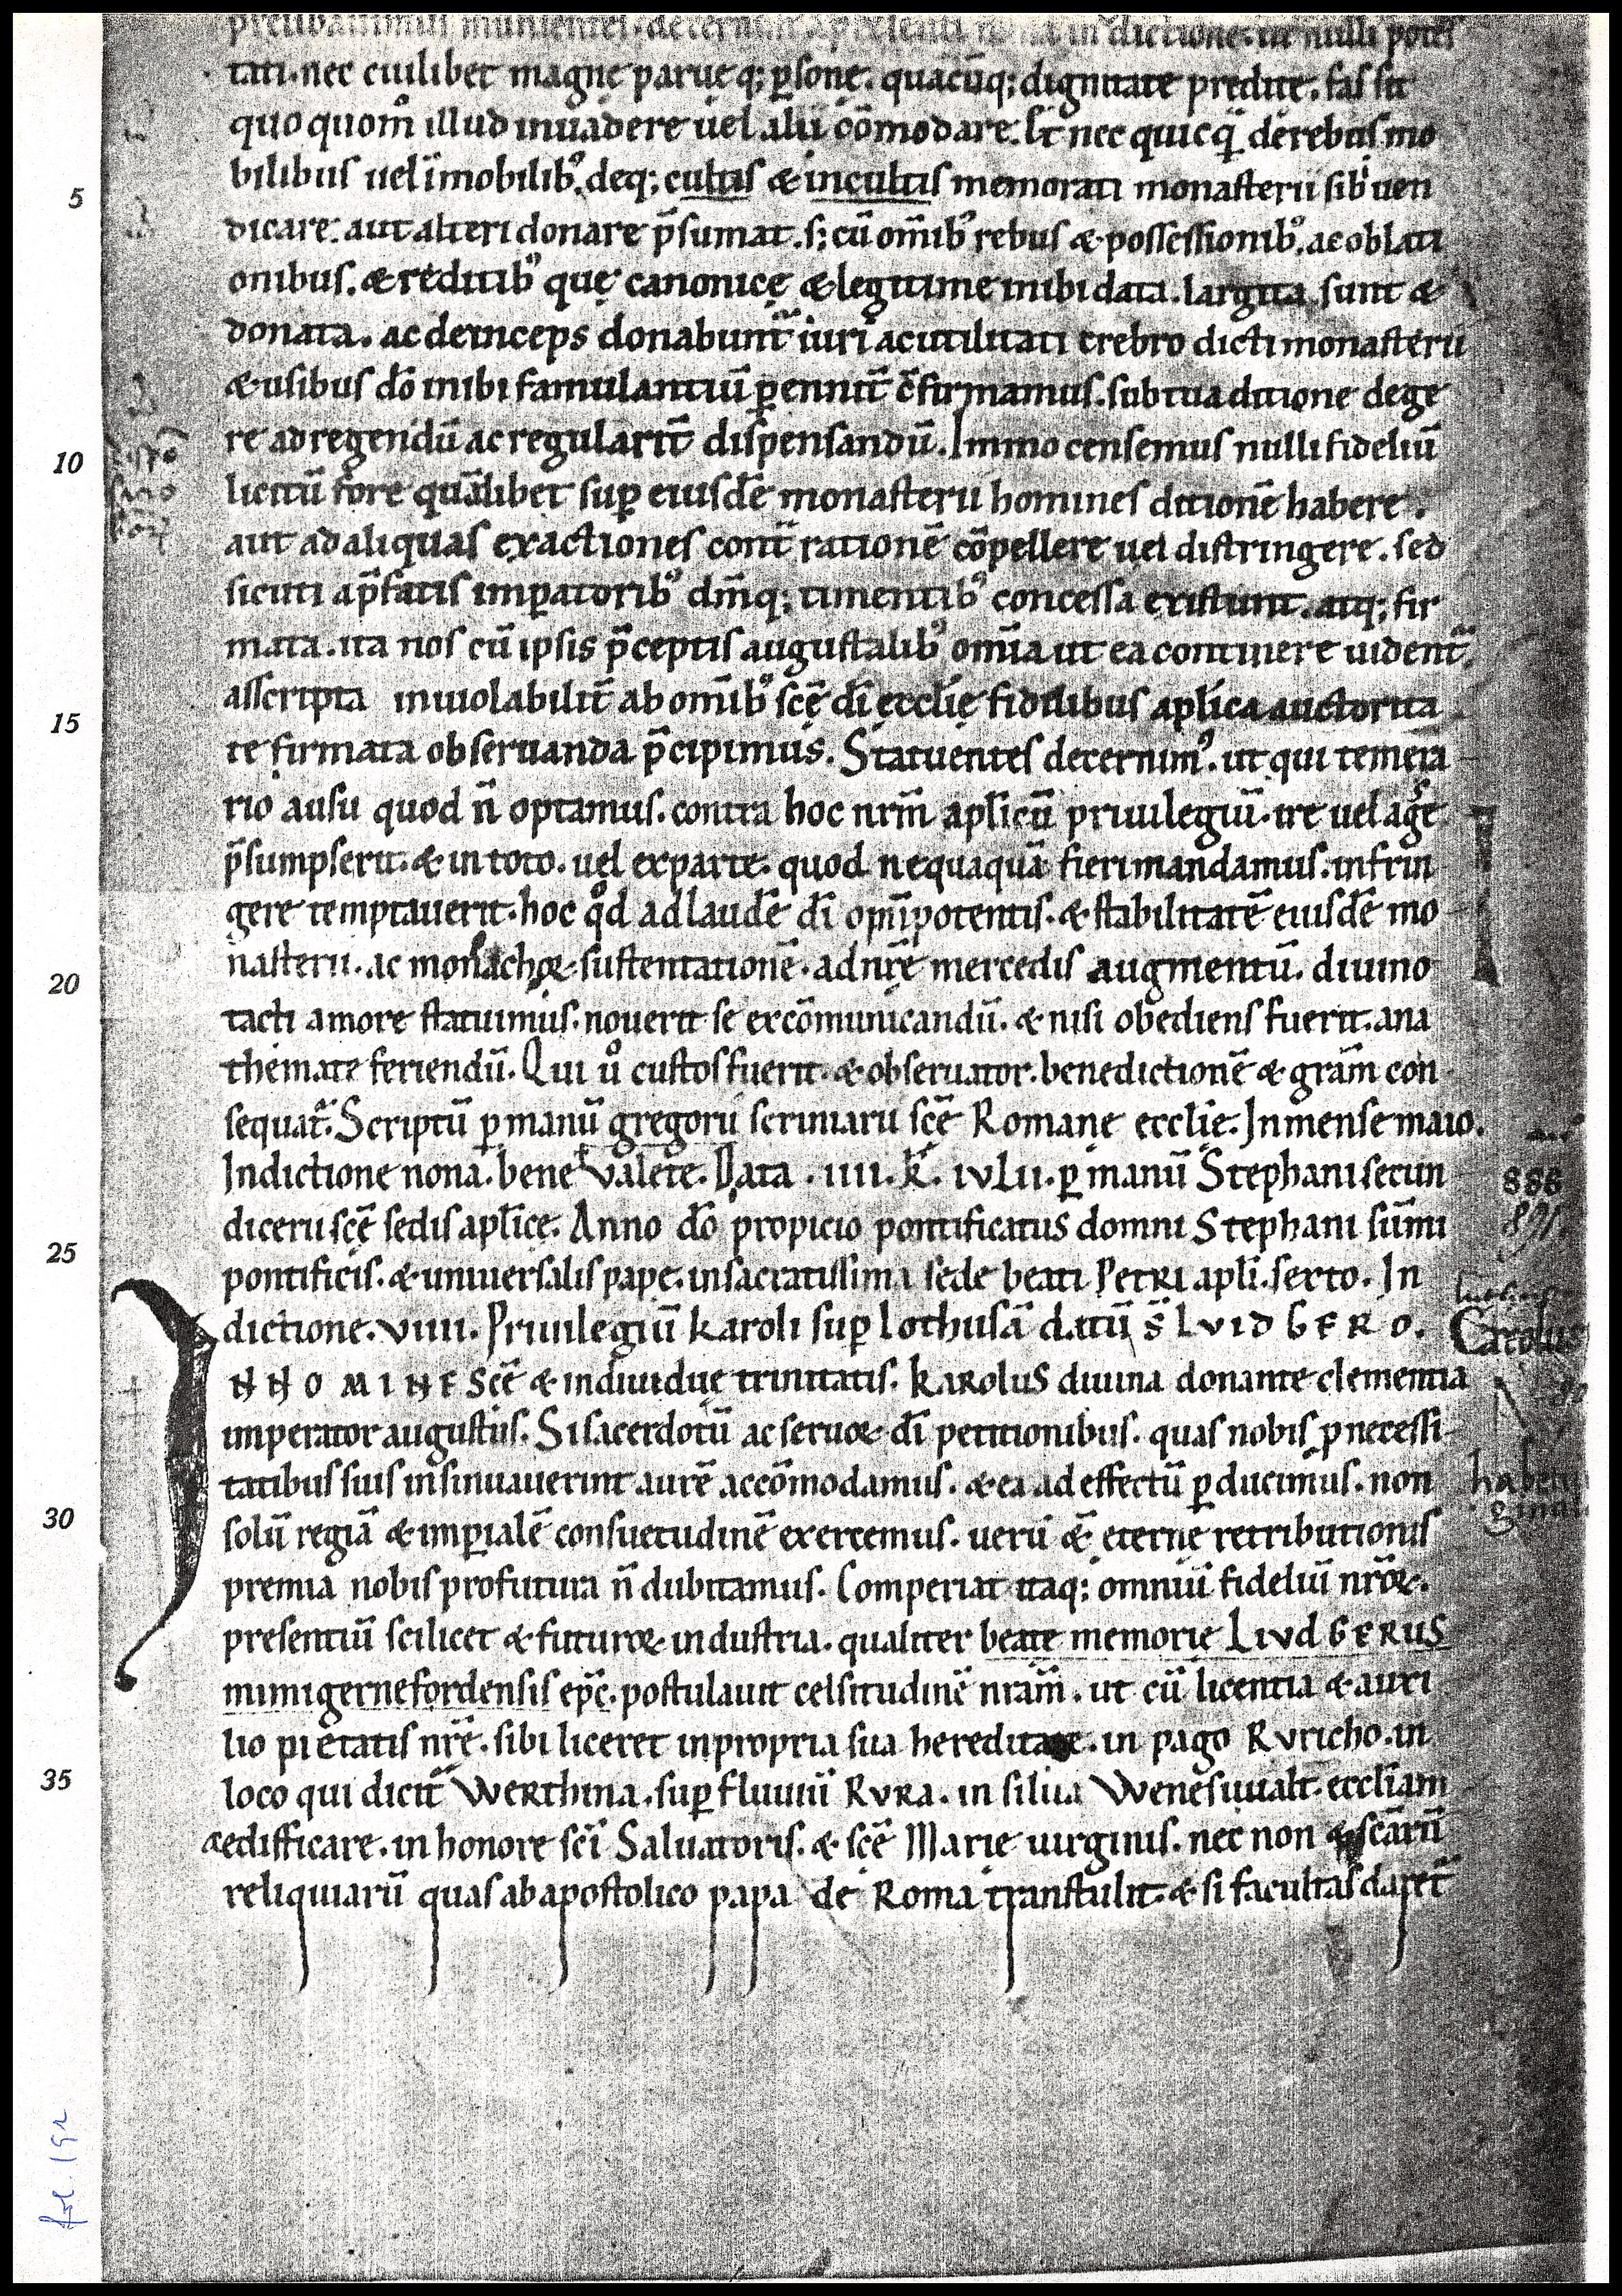 prelibauimus munientes. decernim᷒ in dictione. ut nulli potes
tati. nec cuilibet magnę paruę q; p̱sonę. quacūq; dignitate predite. fas sit
quo quom̊ illud inuadere uel alii cōmodare. Et nec quicq̄ de rebus mo
5 bilibus uel īmobilib᷒. deq; cultis & incultis memorati monasterii sibi uen
dicare. aut alteri donare p̄sumat. s; cū om̄ib᷒ rebus & possessionib᷒. ac oblati
onibus. & reditib᷒ quę canonicę & legitime inibi data. largita sunt &
donata. ac deinceps donabunt᷑ iuri ac utilitati crebro dicti monasterii
& usibus dō inibi famulantiū p̱ennit̄ c̄firmamus. sub tua ditione dege
10 re ad regendū ac regularit̄ dispensandū. Immo censemus nulli fideliū
licitū fore quālibet sup̱ eiusdē monasterii homines ditionē habere.
aut ad aliquas exactiones cont᷑ rationē cōpellere uel distringere. sed
sicuti a p̄fatis imp̱atorib᷒ dm̄q; timentib᷒ concessa existunt. atq; fir
mata. ita nos cū ipsis p̄ceptis augustalib᷒ omīa ut ea continere uident᷑.
15 asscripta inuiolabilit̄ ab om̄ib᷒ scē dī ecclię fidelibus aplica auctorita
te firmata obseruanda p̄cipimus. Statuentes decernim᷒. ut qui temera
rio ausu quod n̄ optamus. contra hoc nrm̄ aplicū priuilegiū. ire uel agere
p̄sumpserit. & in toto. uel ex parte. quod nequaquā fieri mandamus. infrin
gere temptauerit. hoc qd̊ ad laudē dī omp̄potentis. & stabilitatē eiusdē mo
20 nasterii. ac monachoꝝ. sustentationē. ad nrē mercedis augmentū. diuino
tacti amore statuimus. nouerit se excōmunicandū. & nisi obediens fuerit. ana
themate feriendū. Qui ů custos fuerit. & obseruator. benedictionē & grām con
sequat᷑. Scriptū p̱ manū gregorii scriniarii scē Romanę ecclię. In mense maio.
Indictione nona. bene valete. Data. IIII. k̄. IVLII. p̱ manū Stephani secun
25 dicerii scē sedis aplicę. Anno dō propicio pontificatus domni Stephani sūmi
pontificis. & uniuersalis papę. in sacratissima sede beati Petri apli. sexto. In
dictione. VIIII. Priuilegiū karoli sup̱ Lothusā datū s̄ LVIDGERO.
INNOMINE scē & indiuiduę trinitatis. karolus diuina donante clementia
imperator augustus. Si sacerdotū ac seruoꝝ dī petitionibus. quas nobis p̱ necessi
tatibus suis insinuauerint aurē accōmodamus. & ea ad effectū p̱ducimus. non
30 solū regiā & imp̱ialē consuetudinē exercemus. uerū &̄ eternę retributionis
premia nobis profutura n̄ dubitamus. Comperiat itaq; omniū fideliū nrōꝝ.
presentiū scilicet & futuroꝝ industria. qualiter beate memorię LIVDGERUS
mimigernefordensis ep̄c. postulauit celsitudinē nrām. ut cū licentia & auxi
lio pietatis nrē. sibi liceret in propria sua hereditate. in pago Rvricho. in
35 loco qui dicit᷑ Werthina. sup̱ fluuiū RVRA. in silua Wenesuualt. eccliam
aedifficare. in honore scī Saluatoris. & scē Marię uirginis. nec non & scārū
reliquiarū quas ab apostolico papa de Roma transtulit. & si facultas daret᷑
888
891.
Carolus
fol. 19r